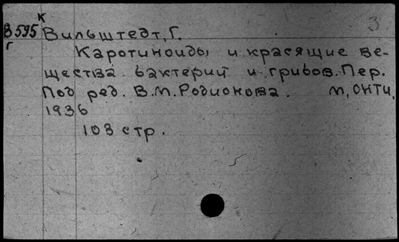 К
В595
Г
3
Вильштедт, Г.
Каротиноиды и красящие ве-
щества бактерий и грибов. Пер.
Под ред. В.М. Родионова. М, ОНТИ,
1936
103 стр.